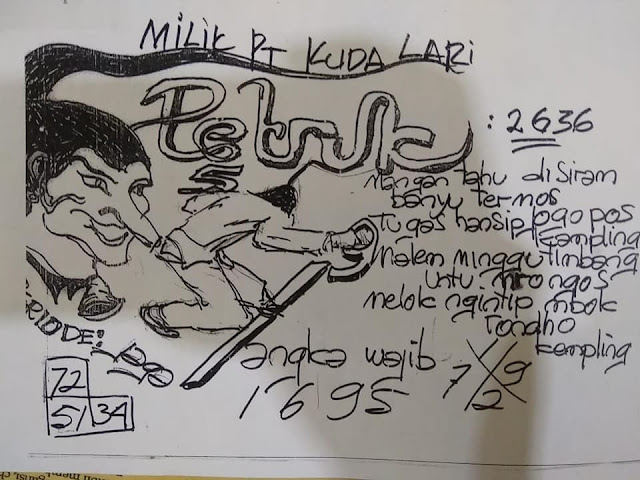 MILIK PT KUDA LARI
Petruk
5
: 2636
Mangan tahu disiram
banyu termos
Tugas hansip jogo pos
kampling
Malem minggu timbang
untu mrongos
melok ngintip mbok
Tondho
kempling
PERIODE:
angka wajib
1695
7 9
2
72
51 34